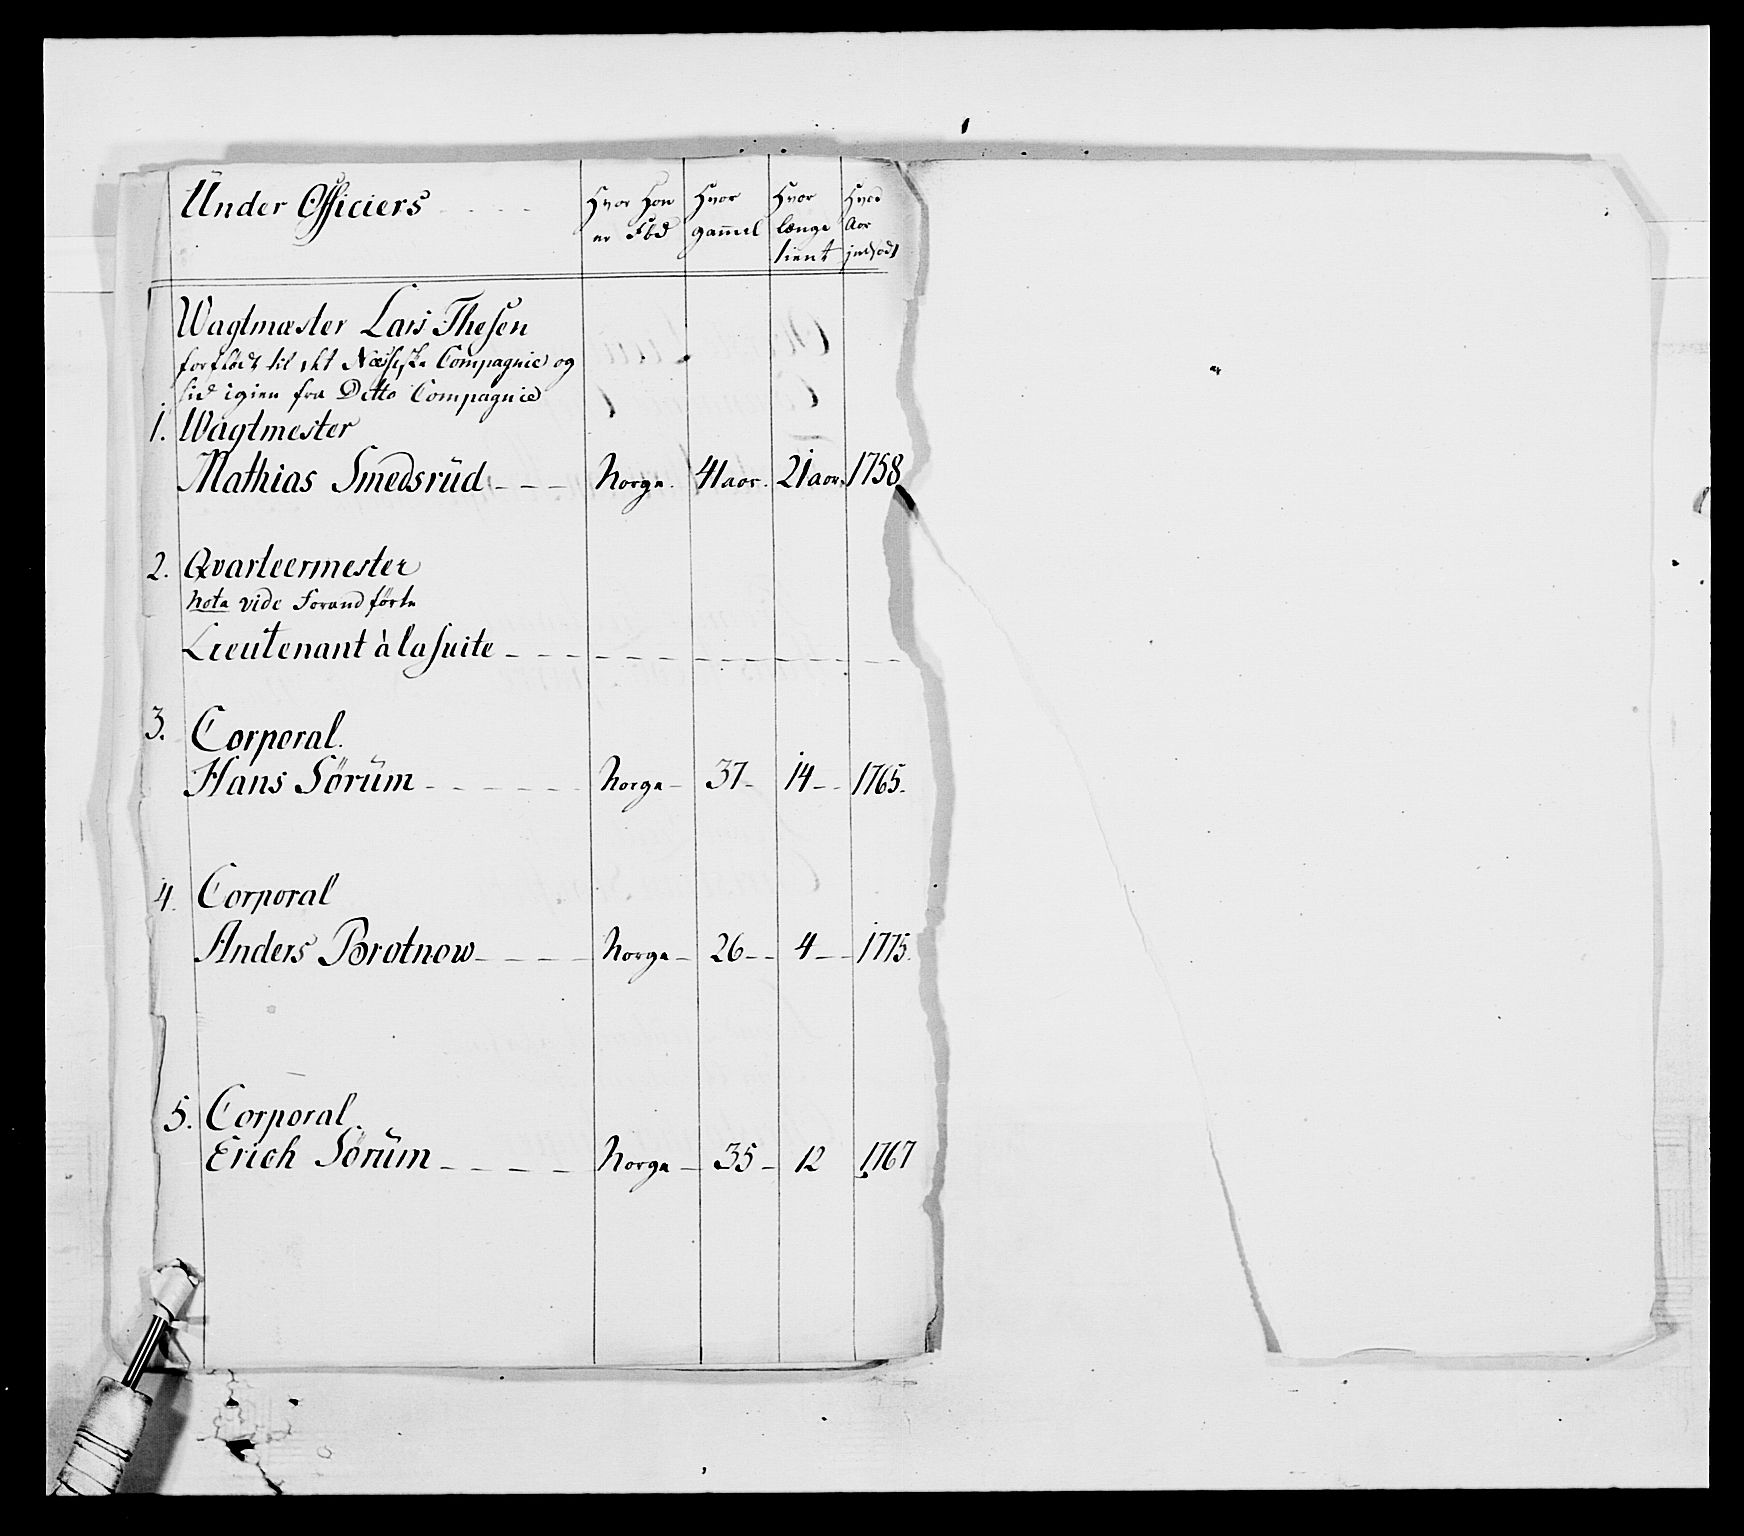 Under Officiers
Hvor Hon er Fød
Hvor gam̄el
Hvor længe tient
Hvad Aar
Wagtmæster Lars Thesen
forflödt til det Næsiske Compagnie og
sid igien fra Ditto Compagnie
1. Wagtmester
Mathias Smedsrüd Norge. 41 aar. 21 aar. 1758
2. Qvarteermester
Nota vide Forandförte
Lieutenant à la Suite
3. Corporal.
Hans Sörüm Norge 37 14 1765.
4. Corporal
Anders Brotnow Norge 26 4 1775.
5. Corporal.
Erich Sörüm Norge 35 12 1767